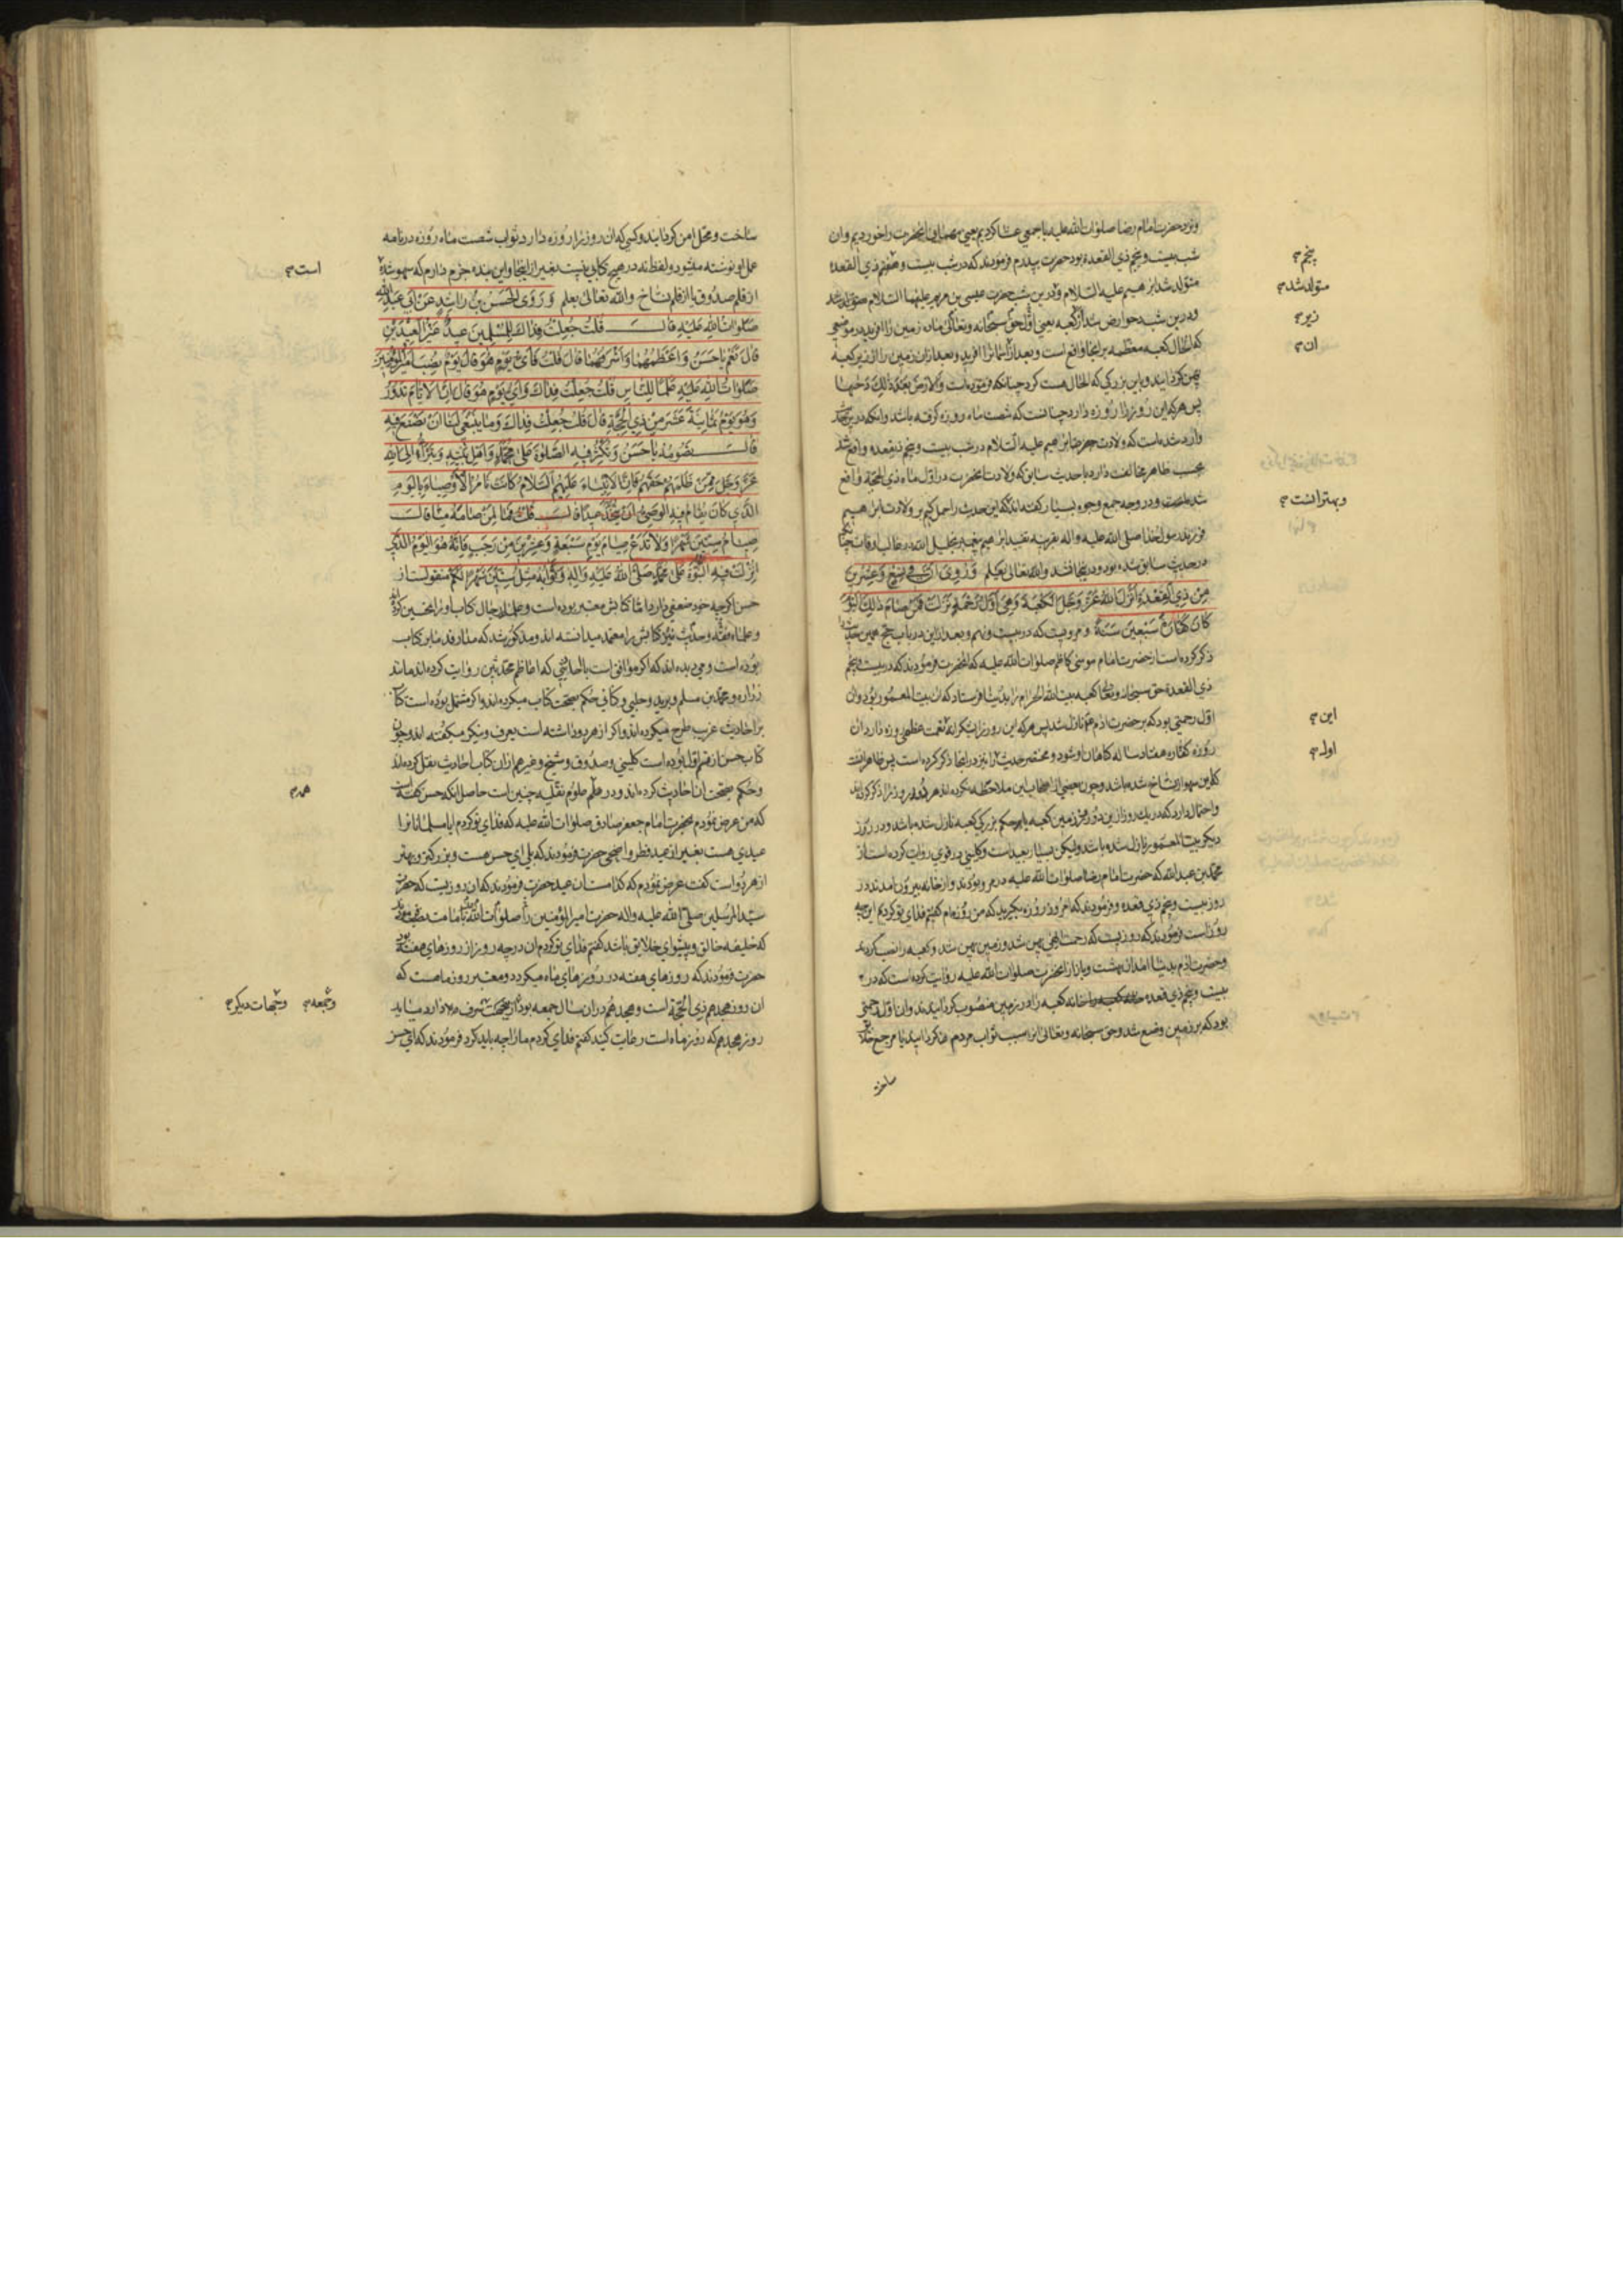 ونزد حضرت امام رضا صلوات الله علیه با جمعی عشا کردیم یعنی مهمانی انحضرت را خوردیم وان
شب بیست و پنجم ذی القعده بود حضرت پدرم فرمودند که در شب بیست و هفتم ذی القعده
متولد شد ابرهیم علیه السلام و درین شب حضرت عیسی بن مریم علیهما السلام متولد شد
ودرین شب دحو ارض شد از کعبه یعنی اول حق سبحانه وتعالی میان زمین را افرید در موضعی
که الحال کعبه معظمه برانجا واقع است وبعد از اسمانرا افرید وبعد ازان زمین را از زیر کعبه
پهن کردانید وباین بزرکی که الحال هست کرد چنانکه فرموده است والارض بعد ذلک دحیها
پس هرکه این روز را روزه دارد چنانست که شصت ماه روزه کرفته باشد وانکه درین
وارد شده است که ولادت حضرت ابرهیم علیه السلام در شب بیست وپنجم ذیقعده واقع شد
بحسب ظاهر مخالفت دارد با حدیث سابق که ولادت انحضرت در اول ماه ذی الحجة واقع
شده است ودر وجه جمع وجوه بسیار کفته اند که این حدیث را حمل کنیم بر ولادت ابرهیم
فرزند رسول خدا صلی الله علیه واله بقرینه تقیید ابرهیم پیغمبر بخلیل الله در غالب اوقات چنا
در حدیث سابق شده بود ودر اینجا نشد والله تعالی یعلم وَرُوِیَ اَنَّ فی تِسْعٍ وَعِشْرینَ
مِنْ ذِی الْقِعْدَةِ اَنْزَلَ اللهُ عَزَّ وَجَلَّ الْکَعْبَةَ وَهِیَ اَوَّلُ رَحْمَةٍ نَزَلَتْ فَمَنْ صامَ ذلِکَ الْیَوْمَ
کانَ کَفّارَةَ سَبْعینَ سَنَةً ومرویست که در بیست ونهم وبعد ازین در باب حج همین حدیث
ذکر کرده است از حضرت امام موسی کاظم صلوات الله علیه که انحضرت فرمودند که در بیست پنجم
ذی القعده حق سبحانه وتعالی کعبه بیت الله الحرام را بدنیا فرستاد که ان بیت المعمور بود وان
اول رحمتی بود که بر حضرت ادم نازل شد پس هرکه این روز را بشکرانه نعمت عظمی روزه دارد ان
روزه کفاره هفتاد ساله کاهان او شود ومختصر حدیث را نیز در اینجا ذکر کرده است پس ظاهر انست
که این سهو از نساخ شده باشد وچون بعضی از اصحاب این ملاحظه نکرده اند هر دو روز را ذکر کرده اند
واحتمال دارد که در یک روز ازین دو روز زمین کعبه یا حکم بزرکی کعبه نازل شده باشد ودر روز
دیکر بیت المعمور نازل شده باشد ولیکن بسیار بعید است وکلینی در قوی روایت کرده است از
محمد بن عبدالله که حضرت امام رضا صلوات الله علیه در مرو بودند واز خانه بیرون امدند در
روز بیست وپنجم ذی قعده وفرمودند که امروز روزه بکیرید که من روزه ام کفتم فدای تو کردیم این چه
روز است فرمودند که روزیست که رحمت الهی پهن شد وزمین پهن شد وکعبه را نصب کردند
وحضرت ادم بدنیا امد از بهشت وباز از انحضرت صلوات الله علیه روایت کرده است که در
بیست وپنجم ذی قعده خانه کعبه را در زمین منصوب کردانیدند وان اول رحمتی
بود که بر زمین وضع شد وحق سبحانه وتعالی انرا سبب ثواب مردمان کردانید یا مرجع خلایق
ساخت
پنجم
متولد شد
زیر
ان
وبهتر انست
این
اول
ساخت ومحل امن کردانید وکسی که ان روز را روزه دارد ثواب شصت ماه روزه در نامه
عمل او نوشته میشود ولفظ نه در هیچ کتابی نیست بغیر از اینجا واین بنده جزم دارم که سهو شده
از قلم صدوق یا از قلم نساخ والله تعالی یعلم وَرَوَی الْحَسَنُ بْنُ راشِدٍ عَنْ اَبی عَبْدِاللهِ
صَلَواتُ اللهِ عَلَیْهِ قالَ قُلْتُ جُعِلْتُ فِداکَ لِلْمُسْلِمینَ عیدٌ غَیْرَ الْعیدَیْنِ
قالَ نَعَمْ یا حَسَنُ وَاَعْظَمُهُما وَاَشْرَفُهُما قالَ قُلْتُ فَاَیُّ یَوْمٍ هُوَ قالَ یَوْمَ نُصِبَ اَمیرُالْمُؤْمِنینَ
صَلَواتُ اللهِ عَلَیْهِ عَلَمًا لِلنّاسِ قُلْتُ جُعِلْتُ فِداکَ وَاَیُّ یَوْمٍ هُوَ قالَ اِنَّ الْاَیّامَ تَدُوْرُ
وَهُوَ یَوْمُ ثَمانِیَةَ عَشَرَ مِنْ ذِی الْحِجَّةِ قالَ قُلْتُ جُعِلْتُ فِداکَ وَما یَنْبَغی لَنا اَنْ نَصْنَعَ فیهِ
قالَ تَصُومُهُ یا حَسَنُ وَتُکْثِرُ فیهِ الصَّلوةَ عَلی مُحَمَّدٍ وَاَهْلِ بَیْتِهِ وَتَبَرَّأُ اِلَی اللهِ
عَزَّ وَجَلَّ مِمَّنْ ظَلَمَهُمْ حَقَّهُمْ فَاِنَّ الْاَنْبِیاءَ عَلَیْهِمُ السَّلامُ کانَتْ تَأْمُرُ الْاَوْصِیاءَ بِالْیَوْمِ
الَّذی کانَ یُقامُ فیهِ الْوَصِیُّ اَنْ یُتَّخَذَ عیدًا قالَ قُلْتُ فَما لِمَنْ صامَهُ مِنّا قالَ
صِیامُ سِتّینَ شَهْرًا وَلا تَدَعْ صِیامَ یَوْمِ سَبْعَةٍ وَعِشْرینَ مِنْ رَجَبٍ فَاِنَّهُ هُوَ الْیَوْمُ الَّذی
اُنْزِلَتْ فیهِ النُّبُوَّةُ عَلی مُحَمَّدٍ صَلَّی اللهُ عَلَیْهِ وَالِهِ وَثَوابُهُ مِثْلُ سِتّینَ شَهْرًا لَکُمْ منقولست از
حسن اکرچه خود ضعفی دارد اما کتابش معتبر بوده است وعلماء رجال کتاب او را تحسین کرده اند
وعلماء فقه وحدیث نیز کتابش را معتمد میدانسته اند ومذکور شد که مدار قدما بر کتاب
بوده است ومی دیده اند که اکر موافق است با احادیثی که اعاظم محدثین روایت کرده اند مانند
زراره ومحمد بن مسلم وبرید وحلبی وکنانی حکم بصحت کتاب میکرده اند واکر مشتمل بوده است کتاب
بر احادیث غریب طرح میکرده اند واکر از هر دو داشته است یعرف وینکر میکفته اند وچون
کتاب حسن از قسم اول بوده است کلینی وصدوق وشیخ وغیرهم ازان کتاب احادیث نقل کرده اند
وحکم بصحت ان احادیث کرده اند ودر علوم نقلیه چنین است حاصل انکه حسن کفته است
که من عرض نمودم بحضرت امام جعفر صادق صلوات الله علیه که فدای تو کردم ایا مسلمانانرا
عیدی هست بغیر از عید فطر واضحی حضرت فرمودند که بلی ای حسن هست وبزرکتر وبهتر
از هر دو است کفت عرض نمودم که کدامست ان عید حضرت فرمودند که ان روزیست که حضرت
سید المرسلین صلی الله علیه واله حضرت امیرالمؤمنین را صلوات الله علیه بامامت نصب فرمودند
که خلیفه خالق وپیشوای خلایق باشد کفتم فدای تو کردم ان در چه روز از روزهای هفته بود
حضرت فرمودند که روزهای هفته در روزهای ماه میکردد ومعتبر روز ماهست که
ان روز هجدهم ذی الحجة است وهجدهم دران سال جمعه بود از جهت شرف دارد میباید
روز هجدهم که روز ماه است رعایت کنید کفتم فدای تو کردم ما را چه باید کرد فرمودند که ای حسن
است
هم
وجمعه
وجهات دیکر